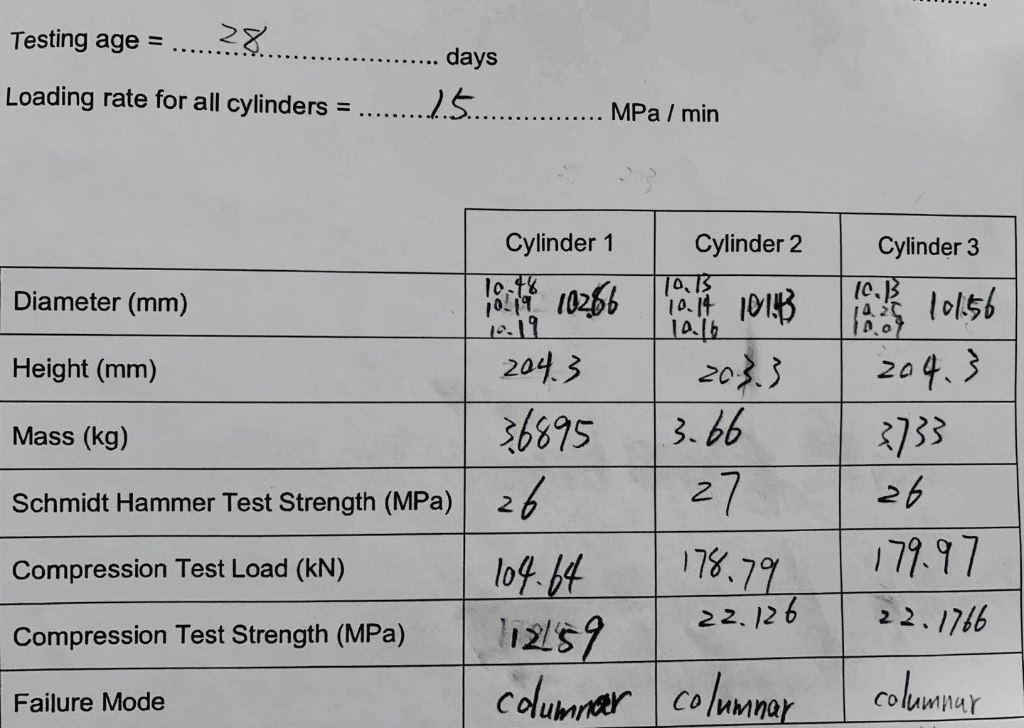 Testing age = 28 days
Loading rate for all cylinders = 15 MPa / min
Cylinder 1 Cylinder 2 Cylinder 3
Diameter (mm) 10.48 10.19 10.19 102.86 10.13 10.14 10.16 101.43 10.13 10.25 10.09 101.56
Height (mm) 204.3 203.3 204.3
Mass (kg) 3.6895 3.66 3.733
Schmidt Hammer Test Strength (MPa) 26 27 26
Compression Test Load (kN) 104.64 178.79 179.97
Compression Test Strength (MPa) 12.59 22.126 22.1766
Failure Mode columnar columnar columnar